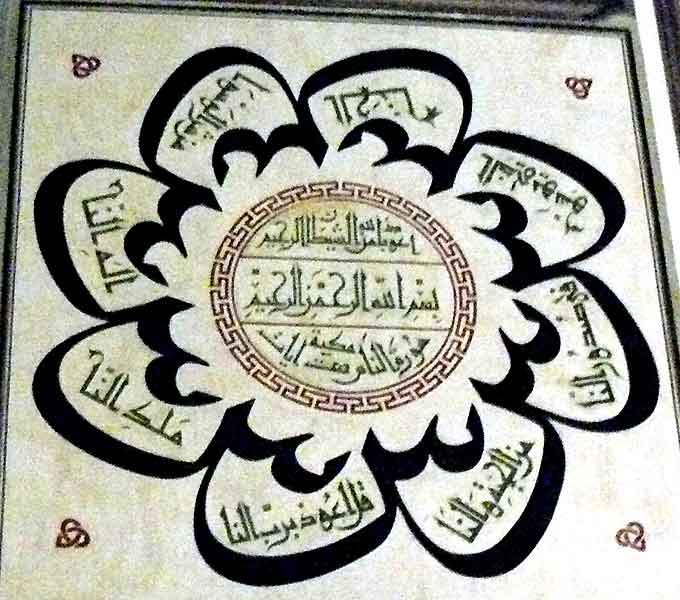 اعوذ بالله من الشيطن الرجيم
بسم الله الرحمن الرحيم
سورة الناس مكية ست ايات
قل اعوذ برب النا
س
ملك النا
س
اله النا
س
من شر الوسوا
س
الخنا
س
الذي يوسو
س
في صدور النا
س
من الجنة والنا
س